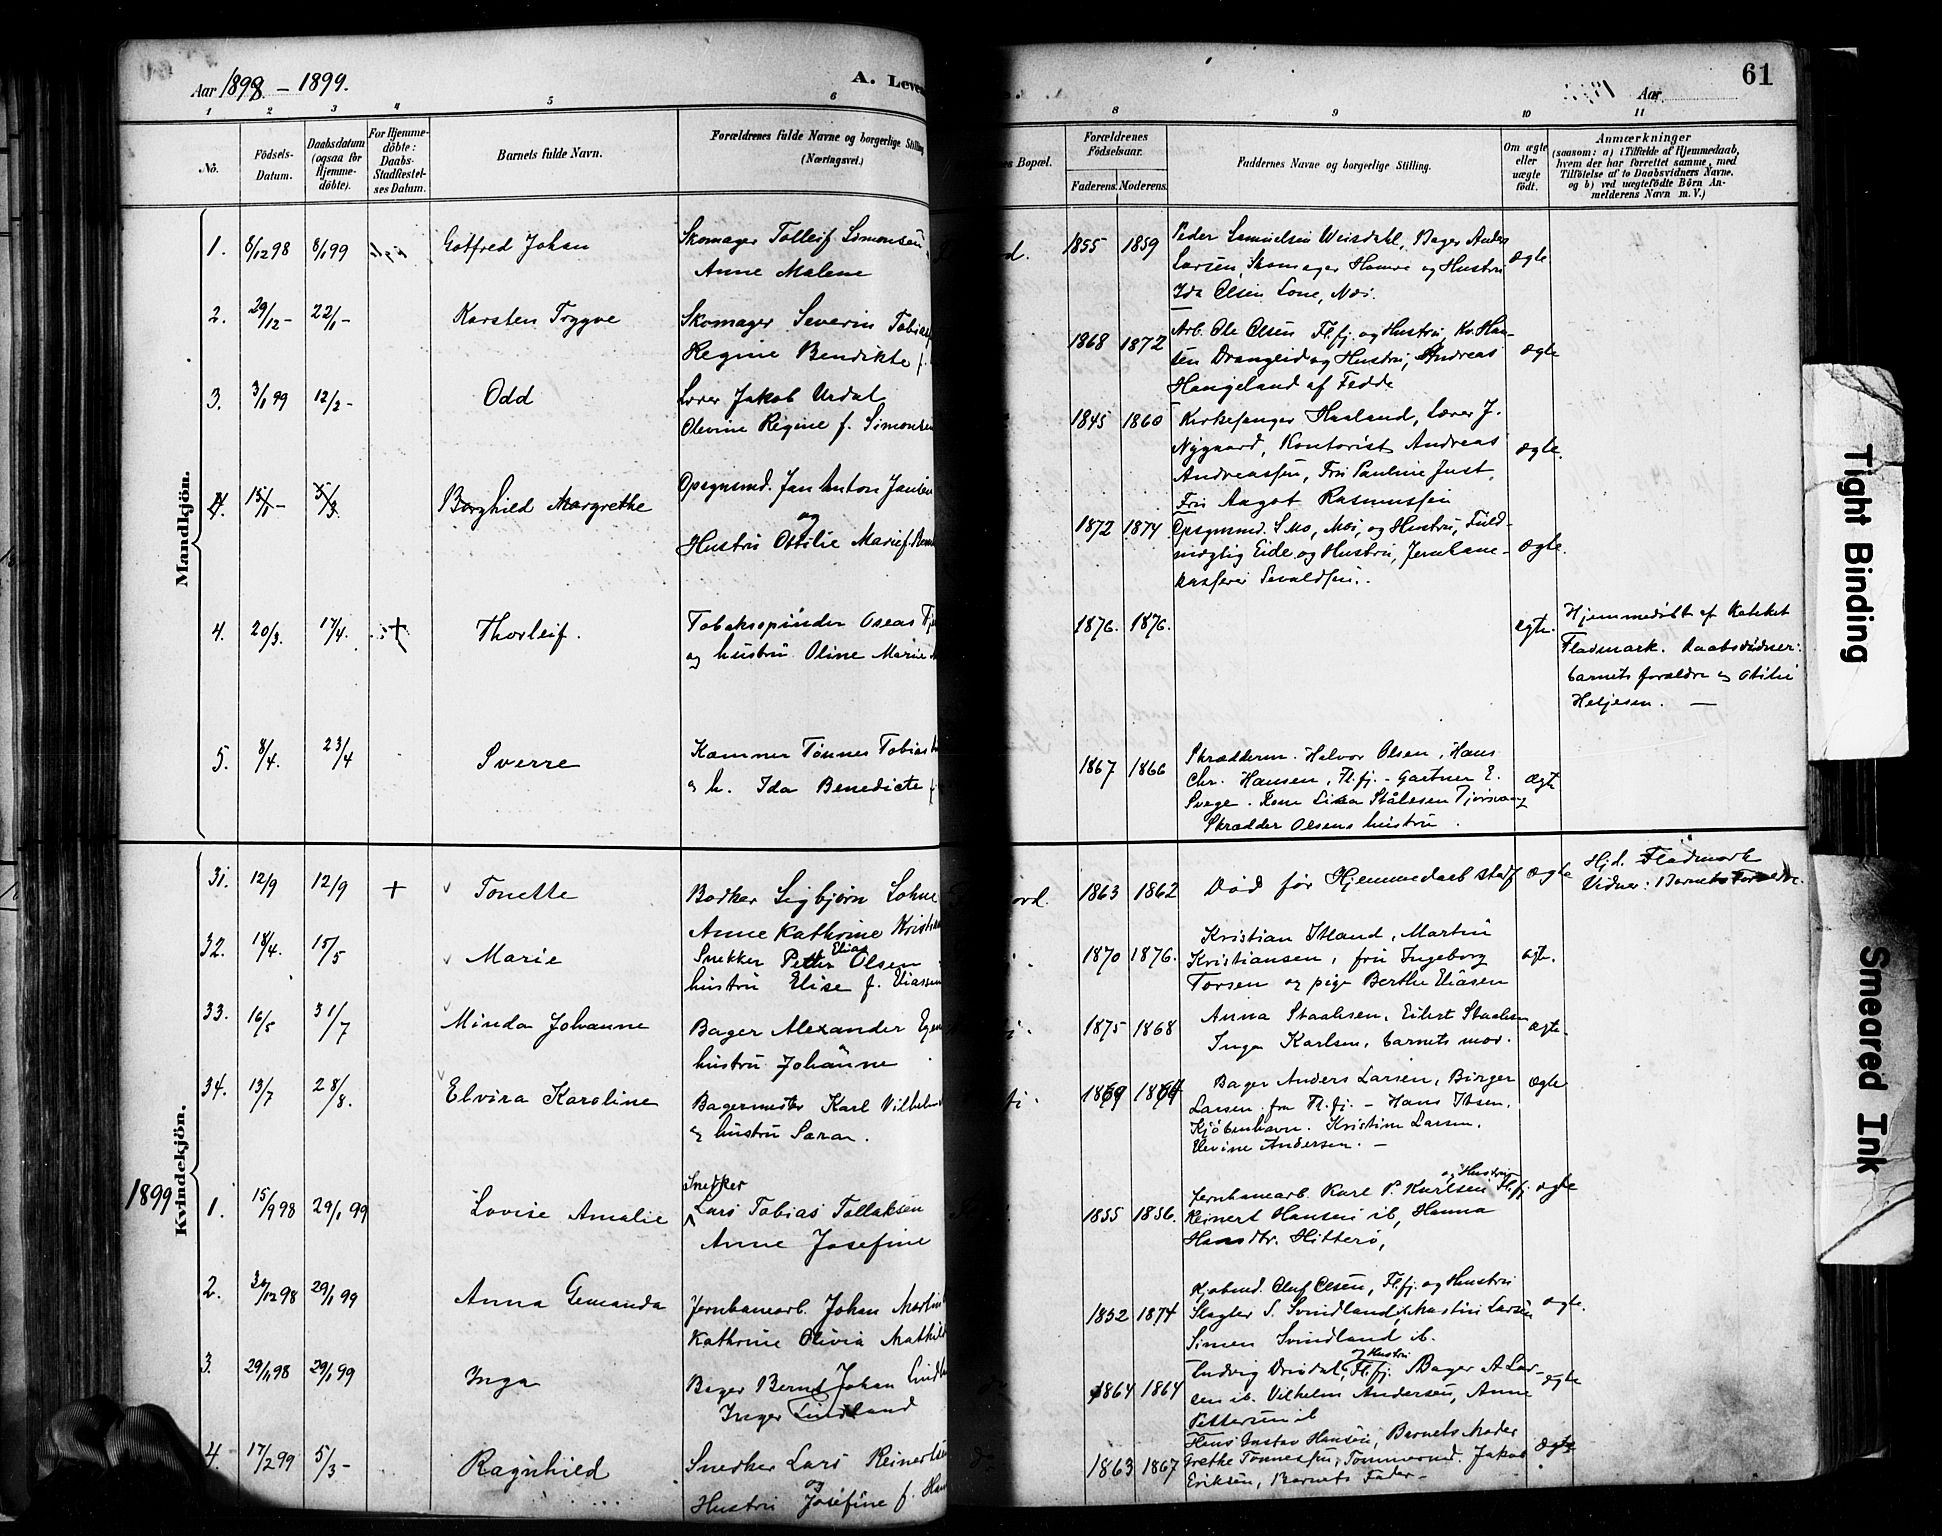 Aar 1898 – 1899.
A. Leven
61
Aar
1 2 3 4 5 6 8 9 10 11
No.
Födsels-Datum.
Daabsdatum (ogsaa for Hjemme-döbte).
For Hjemme-döbte: Daabs-Stadfæstel-ses Datum.
Barnets fulde Navn.
Forældrenes fulde Navne og borgerlige Stilling
(Næringsvei.)
es Bopæl.
Forældrenes Födselsaar.
Faderens. Moderens.
Faddernes Navne og borgerlige Stilling.
Om ægte eller uægte födt.
Anmærkninger
(saasom: a) i Tilfælde af Hjemmedaab,
hvem der har forrettet samme, med
Tilföielse af to Daabsvidners Navne,
og b) ved uægtefödte Börn An-
melderens Navn m. V.)
Mandkjön.
1. 8/12 98 8/1 99 Gotfred Johan
Skomager Tolleif Simonsen
Anne Malene
1855 1859
Peder Samuelsen Weisdahl, Bager Anders
Larsen, Skomager Hamre og Hustru
Ida Olsen Lone, Næs.
ægte
2. 29/12 – 22/1 – Karsten Trygve
Skomager Severin Tobias
Regine Bendikte f.
1868 1872
Arb. Ole Olsen Flfj. og Hustru, Kr. Han-
sen Drangeid og Hustru, Andreas
Haugeland af Fedde
ægte
3. 3/1 99 12/2 – Odd
Lærer Jakob Urdal
Olevine Regine f. Simonsen
1845 1860
Kirkesanger Haaland, Lærer J.
Nygaard, Kontorist Andreas
Andreassen, Frk Pauline Just,
Frk Aagot Rasmussen
ægte
4. 15/1 – 5/3 Borghild Margrethe
Opsynsmd. Jan Anton Jansen
og
Hustru Ottilie Marie f.
1872 1874
Opsynsmd. S. Mo, Moi, og Hustru, Fuld-
mægtig Eide og Hustru, Jernbane-
kasserer Sevaldsen.
ægte
4. 20/3. 17/4. + Thorleif.
Tobakspinder Oseas
og hustru Oline Marie
1876. 1876.
ægte.
Hjemmedöbt af Kateket
Fladmark. Daabsvidner:
barnets forældre og Otilie
Heljesen. —
5. 8/4. 23/4 Sverre
Kamner Tönnes Tobias
og h. Ida Benedicte f.
1867 1866
Skrædderm. Halvor Olsen, Hans
Chr. Hansen, Fl.fj. – Gartner E.
Svege. Kone Lisa Stålesen Tjörsvaag
Skrædder Olsens hustru.
ægte
Kvindekjön.
31. 12/9 12/9 + Tonette
Bödker Sigbjörn
Anne Kathrine Kristian
ord.
1863 1862
Död för Hjemmedaab stadf
ægte
Hjd. Fladmark
Vidner: Barnets Forældre.
32. 18/4. 15/5 Marie
Snekker Petter Elias Olsen
hustru Elise f. Eliassen
1870 1876.
Kristian Itland, Martin
Kristiansen, fru Ingeborg
Torsen og pige Berthe Eliasen
ægte.
33. 16/5 31/7 Minda Johanne
Bager Alexander Egen
hustru Johanne
1875 1868
Anna Staalesen, Eilert Staalesen
Inga Karlsen, barnets mor.
ægte
34. 13/7 28/8. Elvira Karoline
Bagermester Karl Vilhelm
og hustru Sara.
1869 1864
Bager Anders Larsen, Birger
Larsen fra Fl.fj. – Hans Ibsen,
Kjöbenhavn. Kristine Larsen,
Elevine Andersen. —
ægte
1899
1. 15/9 98 29/1 99 Lovise Amalie
Snekker
Lars Tobias Tollaksen
Anne Josefine
1855 1856.
og Hustru
Jernbanearb. Karl P. Karlsen Flfj.
Reinert Hansen ib, Hanna
Hansdtr. Hitterö,
ægte
2. 30/12 98 29/1 99 Anna Gemanda
Jernbanearb. Johan Martin
Kathrine Olivia Mathild
1852 1874
Olaf Olsen, Flfj. og Hustru
Slagter S. Svindland,
Simen Svindland ib.
ægte.
3. 29/11 98 29/1 99 Inga
Bager Bernt Johan Lindland
Inger Lindland
1864 1864
og Hustru
Ludvig Drivdal, Flfj. Bager A Lar-
sen ib. Vilhelm Andersen, Anne
Pettersen ib
ægte
4. 17/2 99 5/3 – Ragnhild
Snedker Lars Reinertsen
og
Hustru Josefine f. Han
do
1863 1867
Hans Gustav Hansen, Barnets Moder
Grethe Tönnessen, Tömmermd. Jakob
Eriksen, Barnets Fader –
ægte
Tight Binding
Smeared Ink